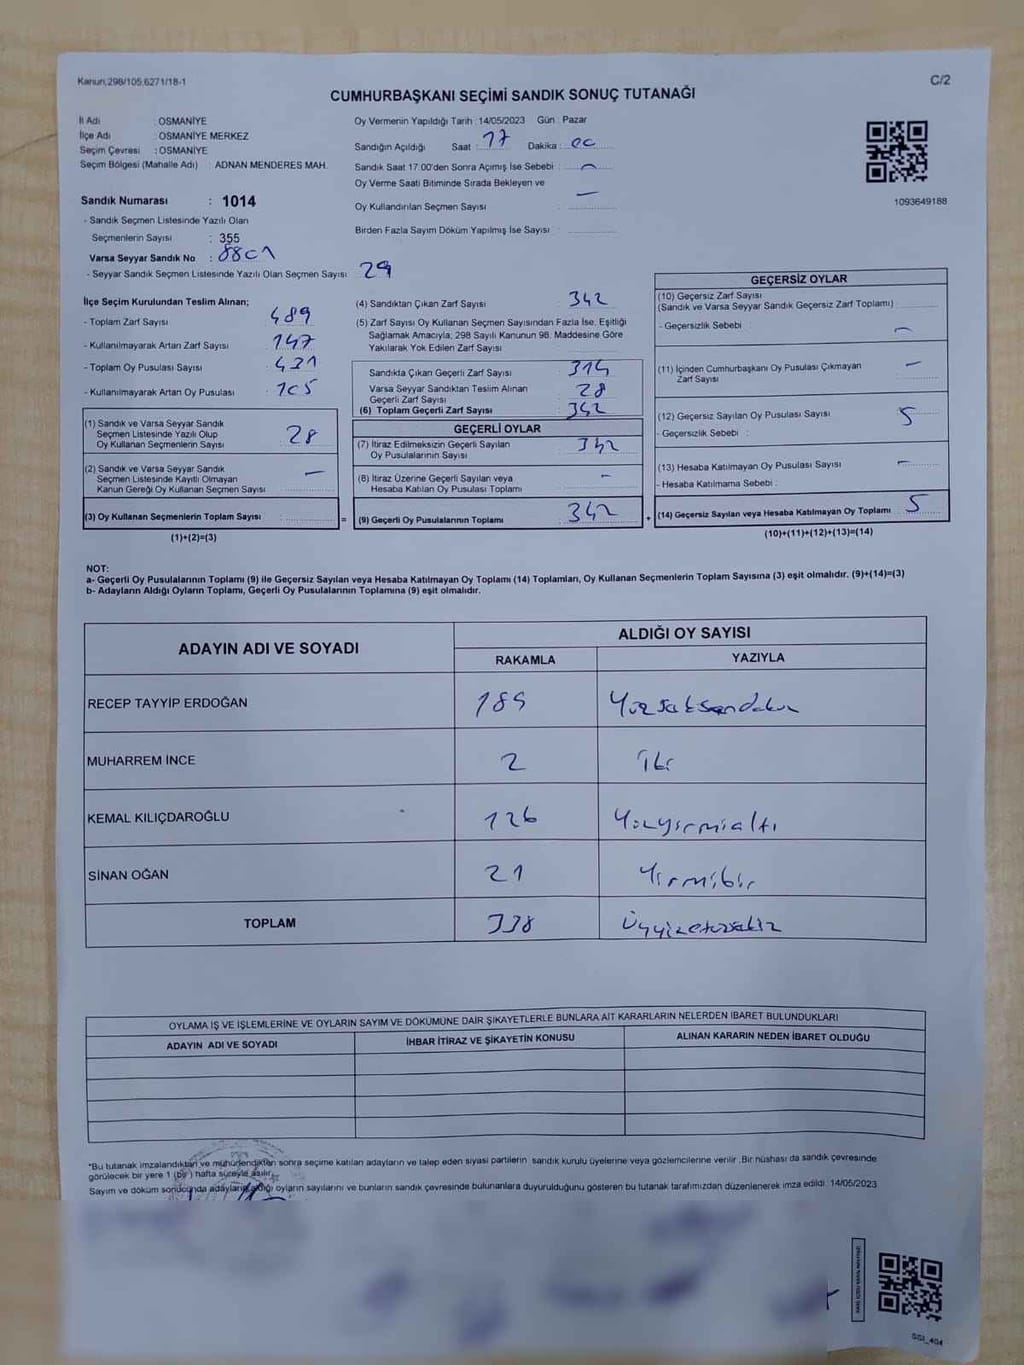 Kanun,298/105,6271/18-1
C/2
CUMHURBAŞKANI SEÇİMİ SANDIK SONUÇ TUTANAĞI
İl Adı : OSMANİYE
İlçe Adı : OSMANİYE MERKEZ
Seçim Çevresi : OSMANİYE
Seçim Bölgesi (Mahalle Adı) ADNAN MENDERES MAH.
Oy Vermenin Yapıldığı Tarih : 14/05/2023 Gün : Pazar
Sandığın Açıldığı Saat : 17 Dakika : 00
Sandık Saat 17:00'den Sonra Açımış İse Sebebi : -
Oy Verme Saati Bitiminde Sırada Bekleyen ve
Oy Kullandırılan Seçmen Sayısı : -
Birden Fazla Sayım Döküm Yapılmış İse Sayısı :
1093649188
Sandık Numarası : 1014
- Sandık Seçmen Listesinde Yazılı Olan
Seçmenlerin Sayısı : 355
Varsa Seyyar Sandık No : 8801
- Seyyar Sandık Seçmen Listesinde Yazılı Olan Seçmen Sayısı : 29
İlçe Seçim Kurulundan Teslim Alınan;
- Toplam Zarf Sayısı : 489
- Kullanılmayarak Artan Zarf Sayısı : 147
- Toplam Oy Pusulası Sayısı : 431
- Kullanılmayarak Artan Oy Pusulası : 105
(1) Sandık ve Varsa Seyyar Sandık
Seçmen Listesinde Yazılı Olup
Oy Kullanan Seçmenlerin Sayısı 28
(2) Sandık ve Varsa Seyyar Sandık
Seçmen Listesinde Kayıtlı Olmayan
Kanun Gereği Oy Kullanan Seçmen Sayısı -
(3) Oy Kullanan Seçmenlerin Toplam Sayısı :
(1)+(2)=(3)
(4) Sandıktan Çıkan Zarf Sayısı : 342
(5) Zarf Sayısı Oy Kullanan Seçmen Sayısından Fazla İse, Eşitliği
Sağlamak Amacıyla, 298 Sayılı Kanunun 98. Maddesine Göre
Yakılarak Yok Edilen Zarf Sayısı :
Sandıkta Çıkan Geçerli Zarf Sayısı : 314
Varsa Seyyar Sandıktan Teslim Alınan
Geçerli Zarf Sayısı : 28
(6) Toplam Geçerli Zarf Sayısı : 342
GEÇERLİ OYLAR
(7) İtiraz Edilmeksizin Geçerli Sayılan
Oy Pusulalarının Sayısı : 342
(8) İtiraz Üzerine Geçerli Sayılan veya
Hesaba Katılan Oy Pusulası Toplamı : -
= (9) Geçerli Oy Pusulalarının Toplamı : 342
GEÇERSİZ OYLAR
(10) Geçersiz Zarf Sayısı
(Sandık ve Varsa Seyyar Sandık Geçersiz Zarf Toplamı) :
- Geçersizlik Sebebi : -
(11) İçinden Cumhurbaşkanı Oy Pusulası Çıkmayan
Zarf Sayısı : -
(12) Geçersiz Sayılan Oy Pusulası Sayısı : 5
- Geçersizlik Sebebi :
(13) Hesaba Katılmayan Oy Pusulası Sayısı : -
- Hesaba Katılmama Sebebi :
+ (14) Geçersiz Sayılan veya Hesaba Katılmayan Oy Toplamı : 5
(10)+(11)+(12)+(13)=(14)
NOT:
a- Geçerli Oy Pusulalarının Toplamı (9) ile Geçersiz Sayılan veya Hesaba Katılmayan Oy Toplamı (14) Toplamları, Oy Kullanan Seçmenlerin Toplam Sayısına (3) eşit olmalıdır. (9)+(14)=(3)
b- Adayların Aldığı Oyların Toplamı, Geçerli Oy Pusulalarının Toplamına (9) eşit olmalıdır.
ADAYIN ADI VE SOYADI
ALDIĞI OY SAYISI
RAKAMLA YAZIYLA
RECEP TAYYİP ERDOĞAN 189 Yüzseksendokuz
MUHARREM İNCE 2 İki
KEMAL KILIÇDAROĞLU 126 Yüzyirmialtı
SİNAN OĞAN 21 Yirmibir
TOPLAM 338 Üçyüzotuzsekiz
OYLAMA İŞ VE İŞLEMLERİNE VE OYLARIN SAYIM VE DÖKÜMÜNE DAİR ŞİKAYETLERLE BUNLARA AİT KARARLARIN NELERDEN İBARET BULUNDUKLARI
ADAYIN ADI VE SOYADI İHBAR İTİRAZ VE ŞİKAYETİN KONUSU ALINAN KARARIN NEDEN İBARET OLDUĞU
*Bu tutanak imzalandıktan ve mühürlendikten sonra seçime katılan adayların ve talep eden siyasi partilerin sandık kurulu üyelerine veya gözlemcilerine verilir .Bir nüshası da sandık çevresinde
görülecek bir yere 1 (bir) hafta süreyle asılır.
Sayım ve döküm sonucunda adayların aldığı oyların sayılarını ve bunların sandık çevresinde bulunanlara duyurulduğunu gösteren bu tutanak tarafımızdan düzenlenerek imza edildi. 14/05/2023